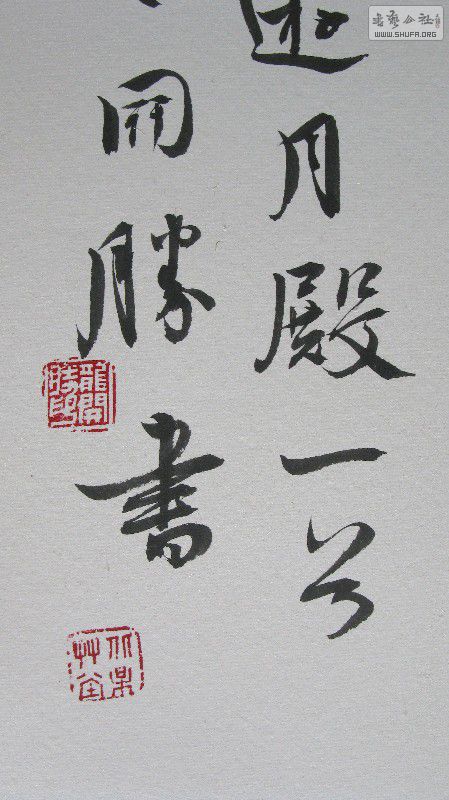 书艺公社
WWW.SHUFA.ORG
月殿一
開勝書
龍開勝印